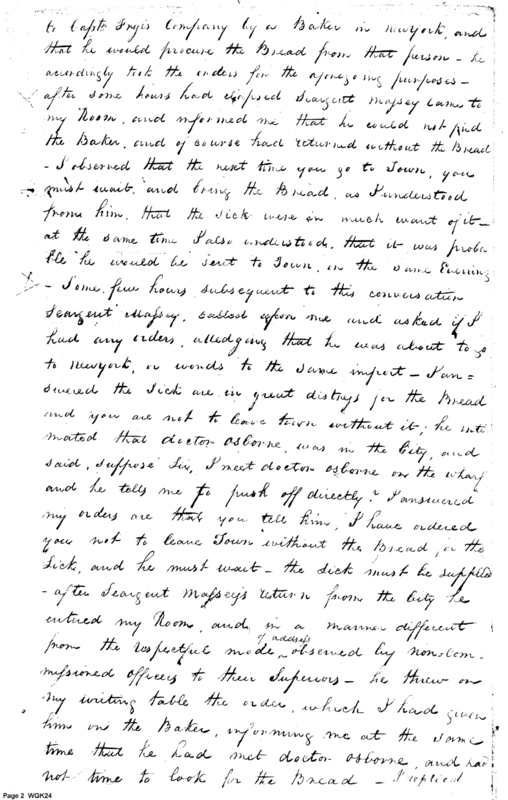 to Capt. Fryes Company by a Baker in Newyork, and
that he would procure the Bread from that person - he
accordingly took the orders for the aforegoing purposes -
after some hours had elapsed Seargent Massey came to
my Room, and informed me that he could not find
the Baker, and of course had returned without the Bread
- I observed that the next time you go to Town, you
must wait, and bring the Bread, as I understood
from him, that the sick were in much want of it -
at the same time I also understood, that it was proba
ble he would be sent to Town, on the same Evening
- Some few hours subsequent to this conversation
Seargent Massey, called upon me and asked if I
had any orders, alledging that he was about to go
to Newyork, or words to the same import - I an=
swered the Sick are in great distress for the Bread
and you are not to leave town without it; he inti
mated that doctor Osborne, was in the City, and
said, suppose Sir, I meet doctor Osborne on the wharf
and he tells me to push off directly? I answered
my orders are that you tell him, I have ordered
you not to leave Town without the Bread, for the
Sick, and he must wait - the sick must be supplied
- after Seargent Massey's return from the City he
entered my Room, and in a manner different
from the respectful mode of address observed by non-com-
missioned officers to their Superiors - he threw on
my writing table the order, which I had given
him on the Baker, informing me at the same
time that he had met doctor Osborne, and had
not time to look for the Bread - I replied
Page 2 WGK24